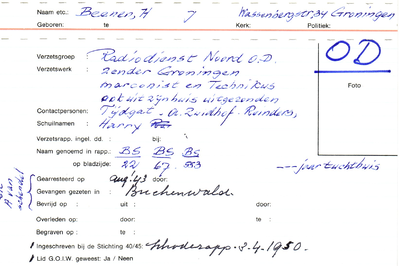 Naam etc.: Beener, H 7 Wassenbergstr, 34 Groningen
Geboren: te Kerk: Politiek:
Verzetsgroep : Radiodienst Noord O.D.
Verzetswerk : zender Groningen
marconist en Technikus
ook uit zijn huis uitgezonden
Contactpersonen: Tijdgat - Dr. Zuidhof - Reinders,
Schuilnaam : Harry
Verzetsrapp. ingel. dd. : bij:
Naam genoemd in rapp.: BS BS BS
op bladzijde: 22 67. 553
---- jaar tuchthuis
Gearresteerd op : aug '43 door:
Gevangen gezeten in : Buchenwald.
Bevrijd op : uit : door:
Overleden op: : door: te :
Begraven op : te :
Ingeschreven bij de Stichting 40/45: 3.4.1950.
Lid G.O.I.W. geweest: Ja / Neen
OD
Foto
A van